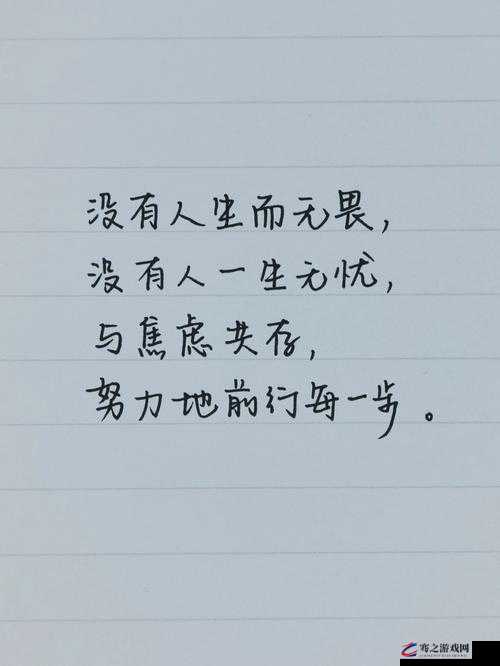 没有人生而无畏，
没有人一生无忧，
与焦虑共存，
努力地前行每一步。
骞之游戏网